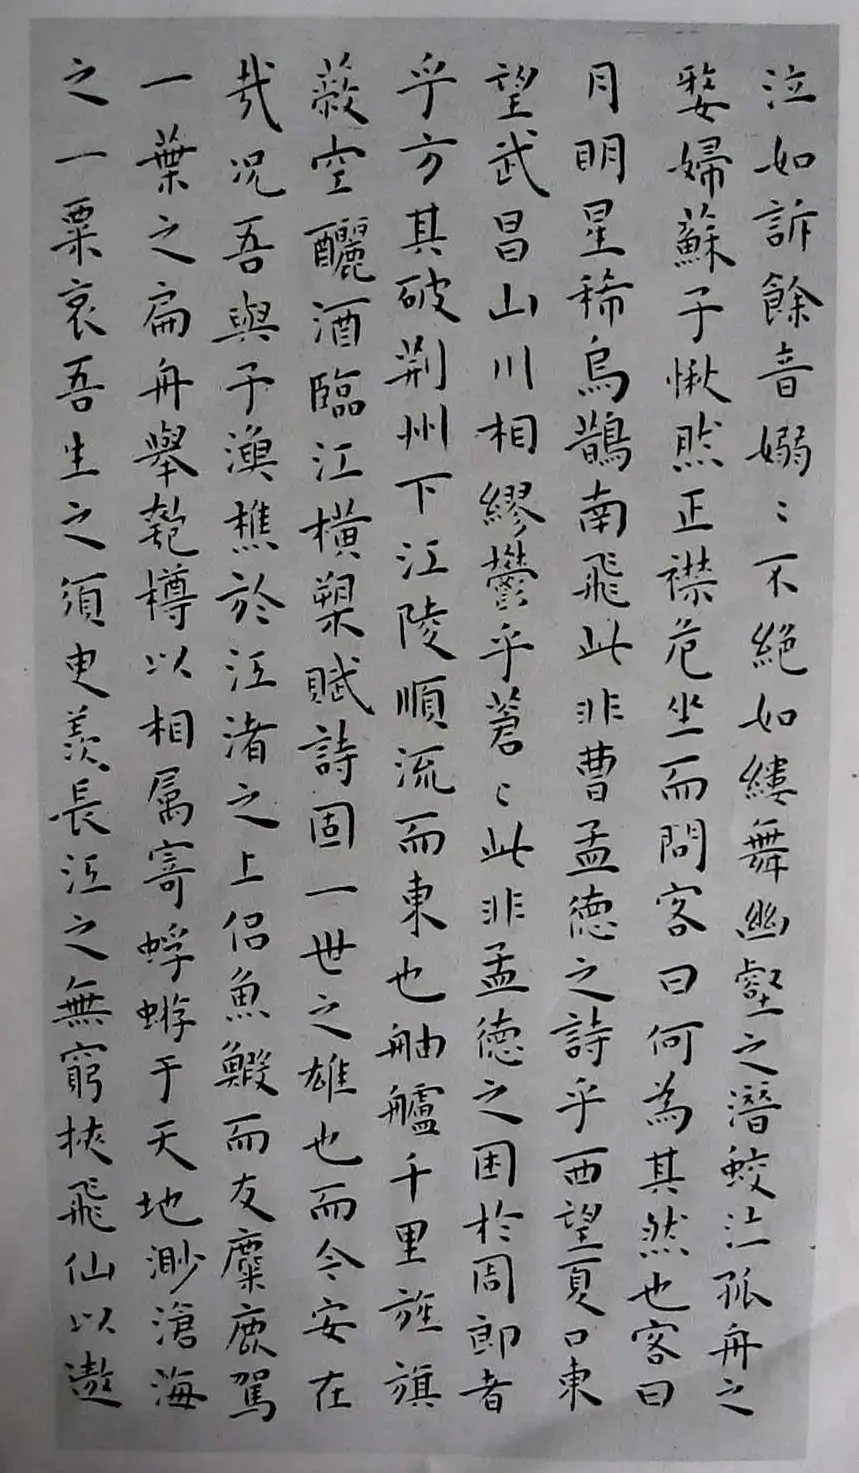 泣如訴餘音嫋〻不絕如縷舞幽壑之潛蛟泣孤舟之
嫠婦蘇子愀然正襟危坐而問客曰何為其然也客曰
月明星稀烏鵲南飛此非曹孟德之詩乎西望夏口東
望武昌山川相繆鬱乎蒼〻此非孟德之困於周郎者
乎方其破荊州下江陵順流而東也舳艫千里旌旗
蔽空釃酒臨江橫槊賦詩固一世之雄也而今安在
哉況吾與子漁樵於江渚之上侶魚鰕而友麋鹿駕
一葉之扁舟舉匏樽以相属寄蜉蝣于天地渺滄海
之一粟哀吾生之須臾羨長江之無窮挾飛仙以遨